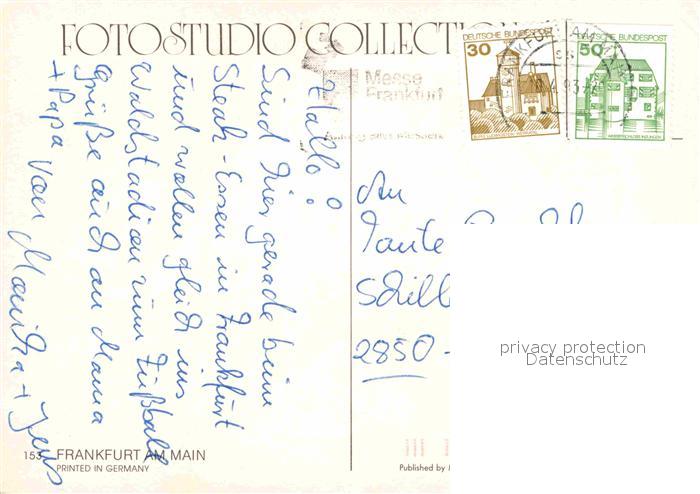 FOTOSTUDIO COLLECTION
DEUTSCHE BUNDESPOST
30
DEUTSCHE BUNDESPOST
50
Messe
Frankfurt
Hallo!
Sind hier gerade beim
Steak-Essen in Frankfurt
und wollen gleich ins
Waldstadion zum Fußball
Grüße auch an Mama
+ Papa von Monika + Jens
An
Tante
Schill
2850-
privacy protection
Datenschutz
153 FRANKFURT AM MAIN
PRINTED IN GERMANY
Published by